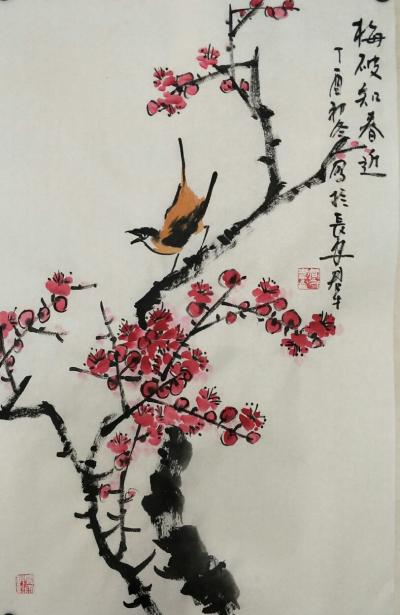 梅破知春近
丁酉初冬写于长安